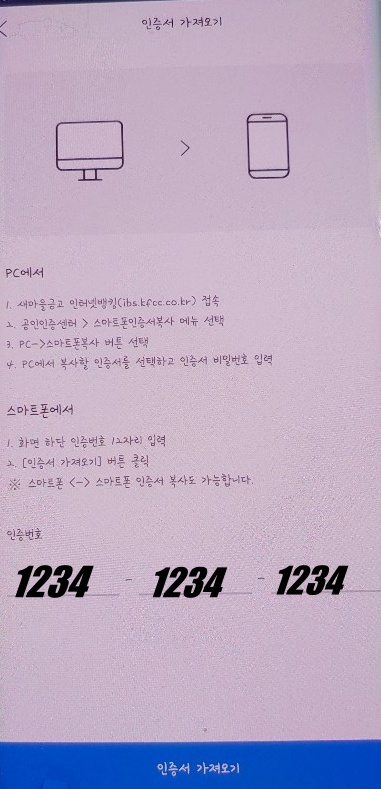 인증서 가져오기
PC에서
1. 새마을금고 인터넷뱅킹(ibs.kfcc.co.kr) 접속
2. 공인인증센터 > 스마트폰인증서복사 메뉴 선택
3. PC->스마트폰복사 버튼 선택
4. PC에서 복사할 인증서를 선택하고 인증서 비밀번호 입력
스마트폰에서
1. 화면 하단 인증번호 12자리 입력
2. [인증서 가져오기] 버튼 클릭
※ 스마트폰 <-> 스마트폰 인증서 복사도 가능합니다.
인증번호
1234 - 1234 - 1234
인증서 가져오기